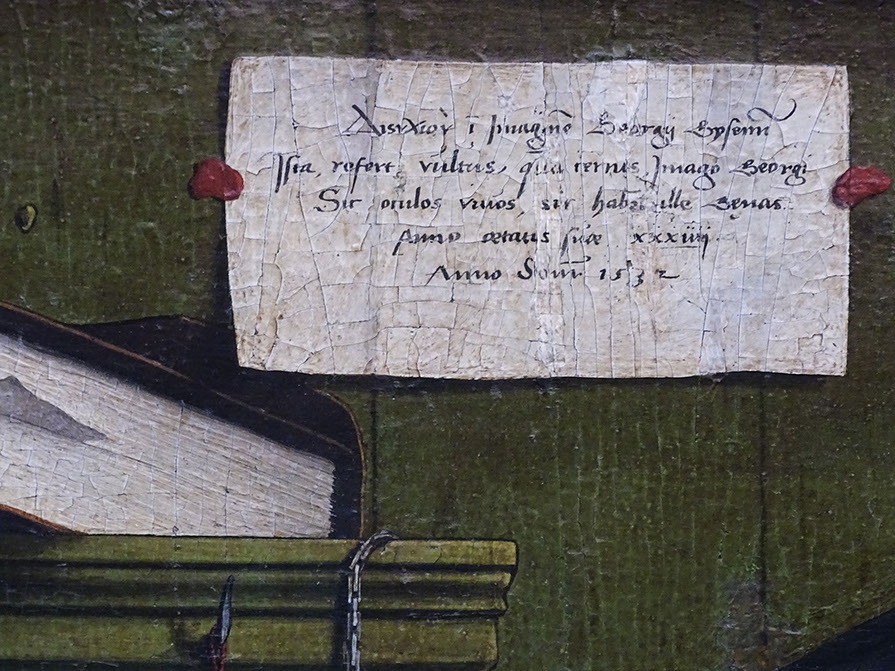 Δίστιχον ĩ Imaginē Georgij Gysenij
Ista, refert, vultus, quā cernis, Imago Georgi
Sic oculos vivos, sic habet ille Genas.
Anno ætatis suæ xxxiiij
Anno dom̄ 1532